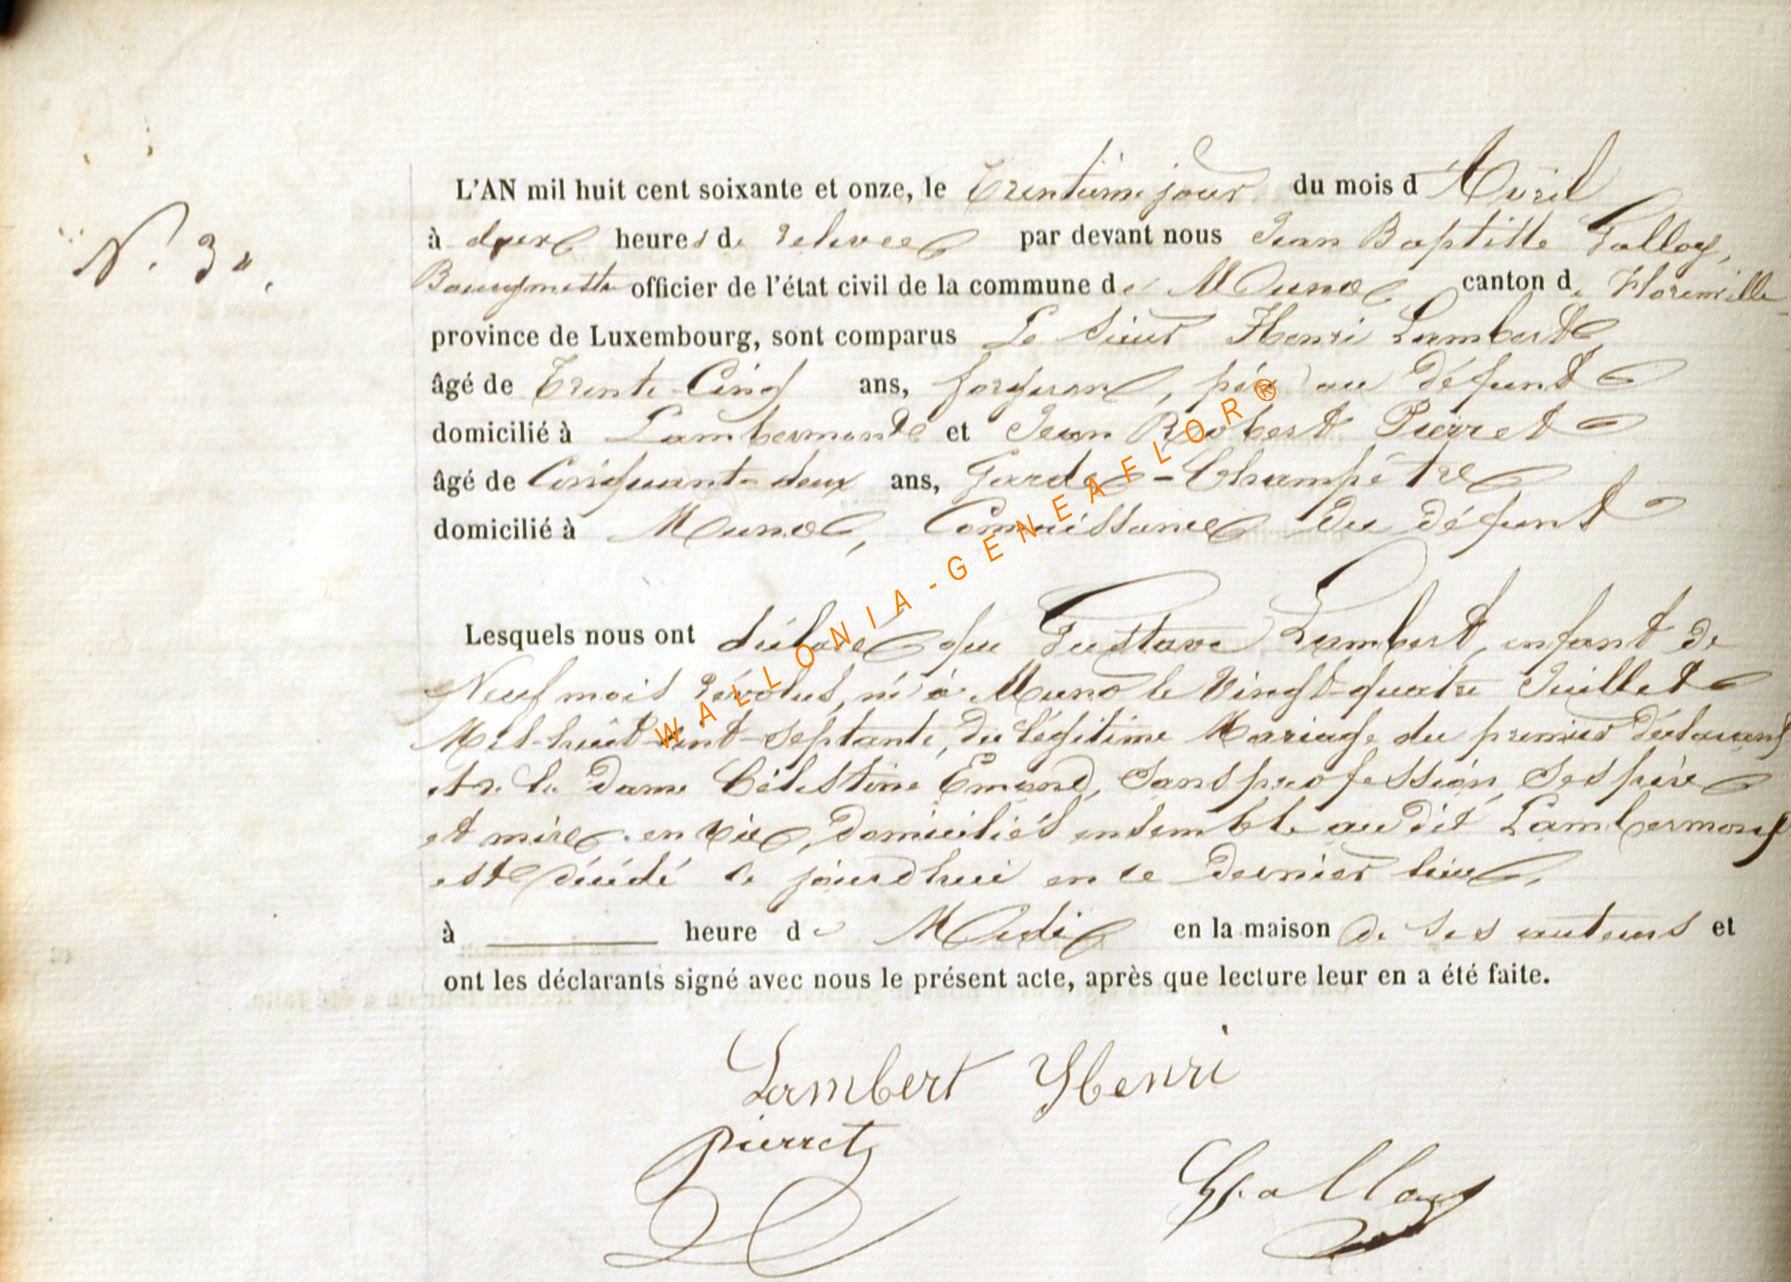 L'AN mil huit cent soixante et onze, le Trentième jour du mois d'Avril
N° 3
à deux heures de relevée par devant nous Jean Baptiste Galloy,
Bourgmestre officier de l'état civil de la commune de Muno canton de Florenville
province de Luxembourg, sont comparus Le Sieur Henri Lambert
âgé de Trente-Cinq ans, forgeron, père au Défunt
domicilié à Lambermont et Jean Robert Pierret
âgé de Cinquante-deux ans, Garde-Champêtre
domicilié à Muno, Connaissance du défunt
Lesquels nous ont déclaré que Gustave Lambert, enfant de
Neuf mois révolus, né à Muno le Vingt-quatre Juillet
Mil-huit-cent-septante, du légitime Mariage du premier déclarant
et de la Dame Célestine Emond, Sans profession, Ses père
et mère en vie, domiciliés ensemble au dit Lambermont
est décédé ce jourd'hui en ce dernier lieu,
à heure de Midi en la maison de ses auteurs et
ont les déclarants signé avec nous le présent acte, après que lecture leur en a été faite.
Lambert Henri
Pierret
Galloy
WALLONIA-GENEAFLOR®